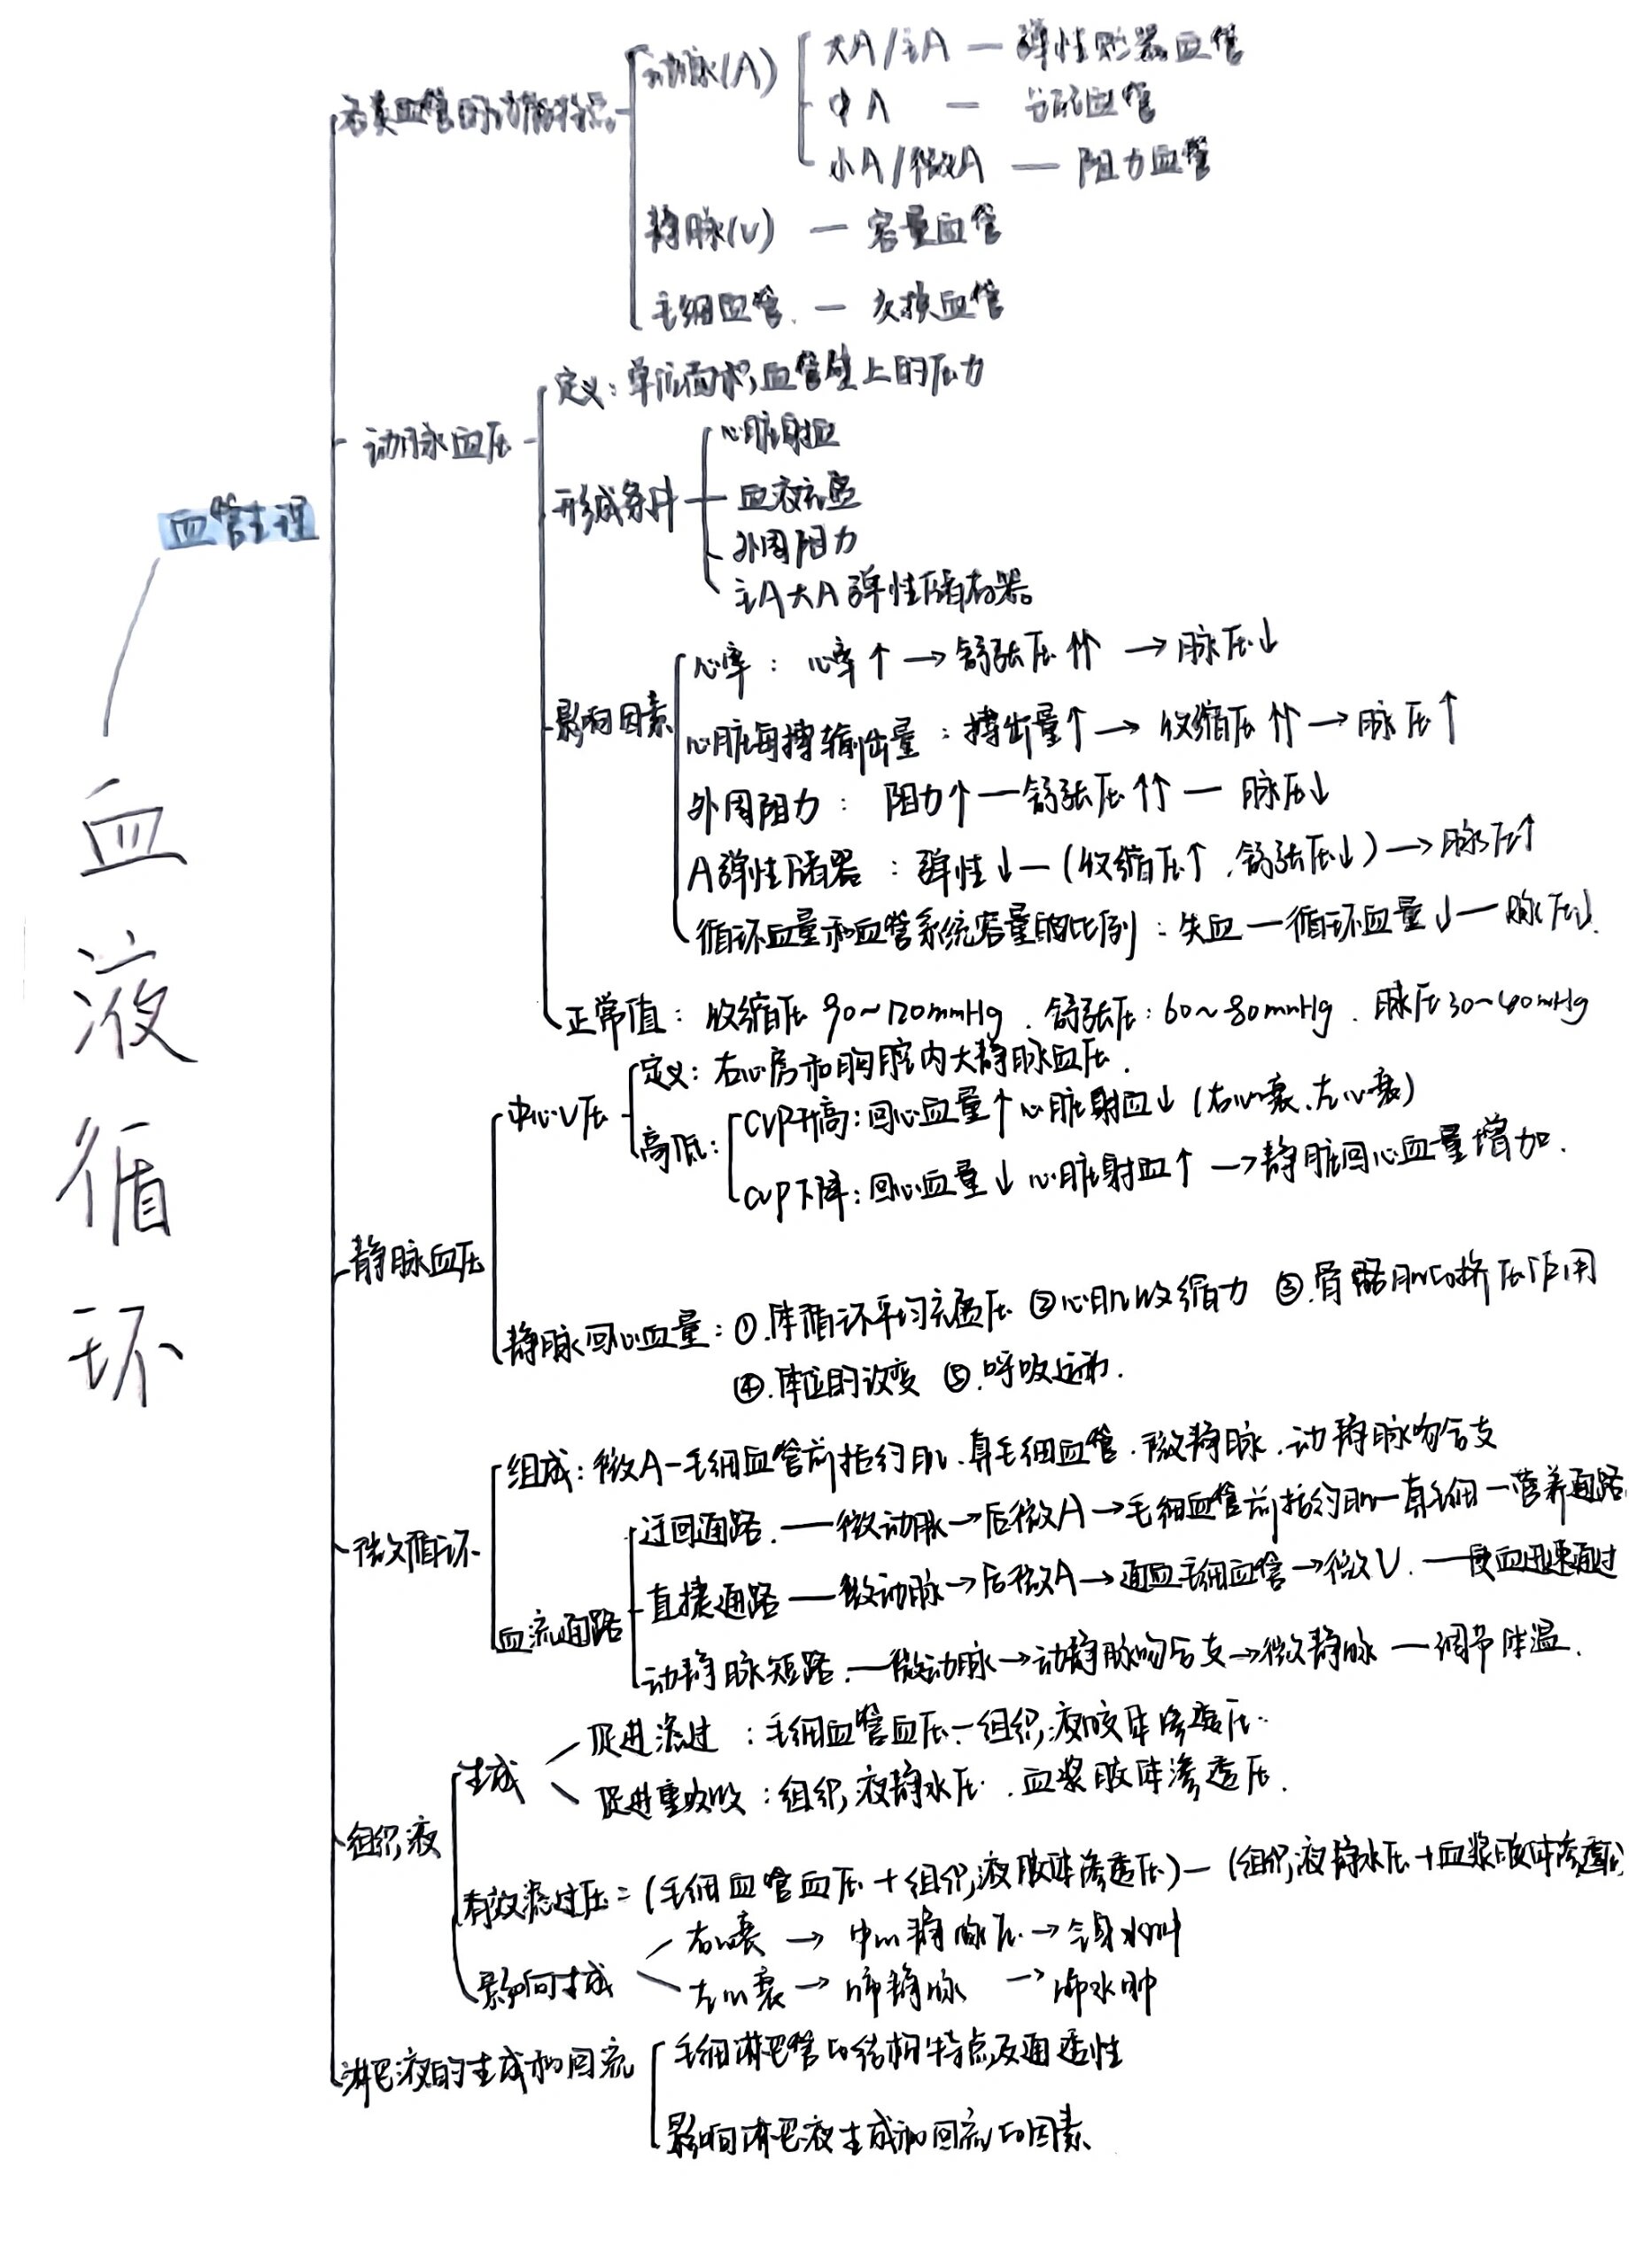 血液循环
血管生理
各类血管的功能特点
动脉(A)
大A/主A — 弹性贮器血管
中A — 分配血管
小A/微A — 阻力血管
静脉(V) — 容量血管
毛细血管. — 交换血管
动脉血压
定义：单位面积血管壁上的压力
形成条件
心脏射血
血液充盈
外周阻力
主A大A弹性储存器
影响因素
心率： 心率↑→舒张压↑↑ →脉压↓
心脏每搏输出量：搏出量↑→ 收缩压↑↑→脉压↑
外周阻力： 阻力↑—舒张压↑↑— 脉压↓
A弹性储器 ：弹性↓—(收缩压↑.舒张压↓)→脉压↑
循环血量和血管系统容量的比例：失血—循环血量↓—脉压↓.
正常值：收缩压90~120mmHg . 舒张压：60~80mmHg . 脉压30~40mmHg
静脉血压
中心V压
定义：右心房和胸腔内大静脉血压.
高低：
CVP升高：回心血量↑心脏射血↓(右心衰.左心衰)
CVP下降：回心血量↓心脏射血↑ →静脏回心血量增加.
静脉回心血量：①.体循环平均充盈压 ②心肌收缩力 ③.骨骼肌的挤压作用
④.体位的改变 ⑤.呼吸运动.
微循环
组成：微A-毛细血管前括约肌.真毛细血管.微静脉.动静脉吻合支
血流通路
迂回通路.—微动脉→后微A→毛细血管前括约肌—真毛细—营养通路
直捷通路—微动脉→后微A→通血毛细血管→微V.—使血迅速通过
动静脉短路.—微动脉→动静脉吻合支→微静脉—调节体温.
组织液
生成
促进滤过：毛细血管血压—组织液胶体渗透压.
促进重吸收：组织液静水压.血浆胶体渗透压.
有效滤过压=(毛细血管血压+组织液胶体渗透压)—(组织液静水压+血浆胶体渗透压)
影响生成
右心衰 → 中心静脉压→全身水肿
左心衰→肺静脉 →肺水肿
淋巴液的生成和回流
毛细淋巴管的结构特点及通透性
影响淋巴液生成和回流的因素